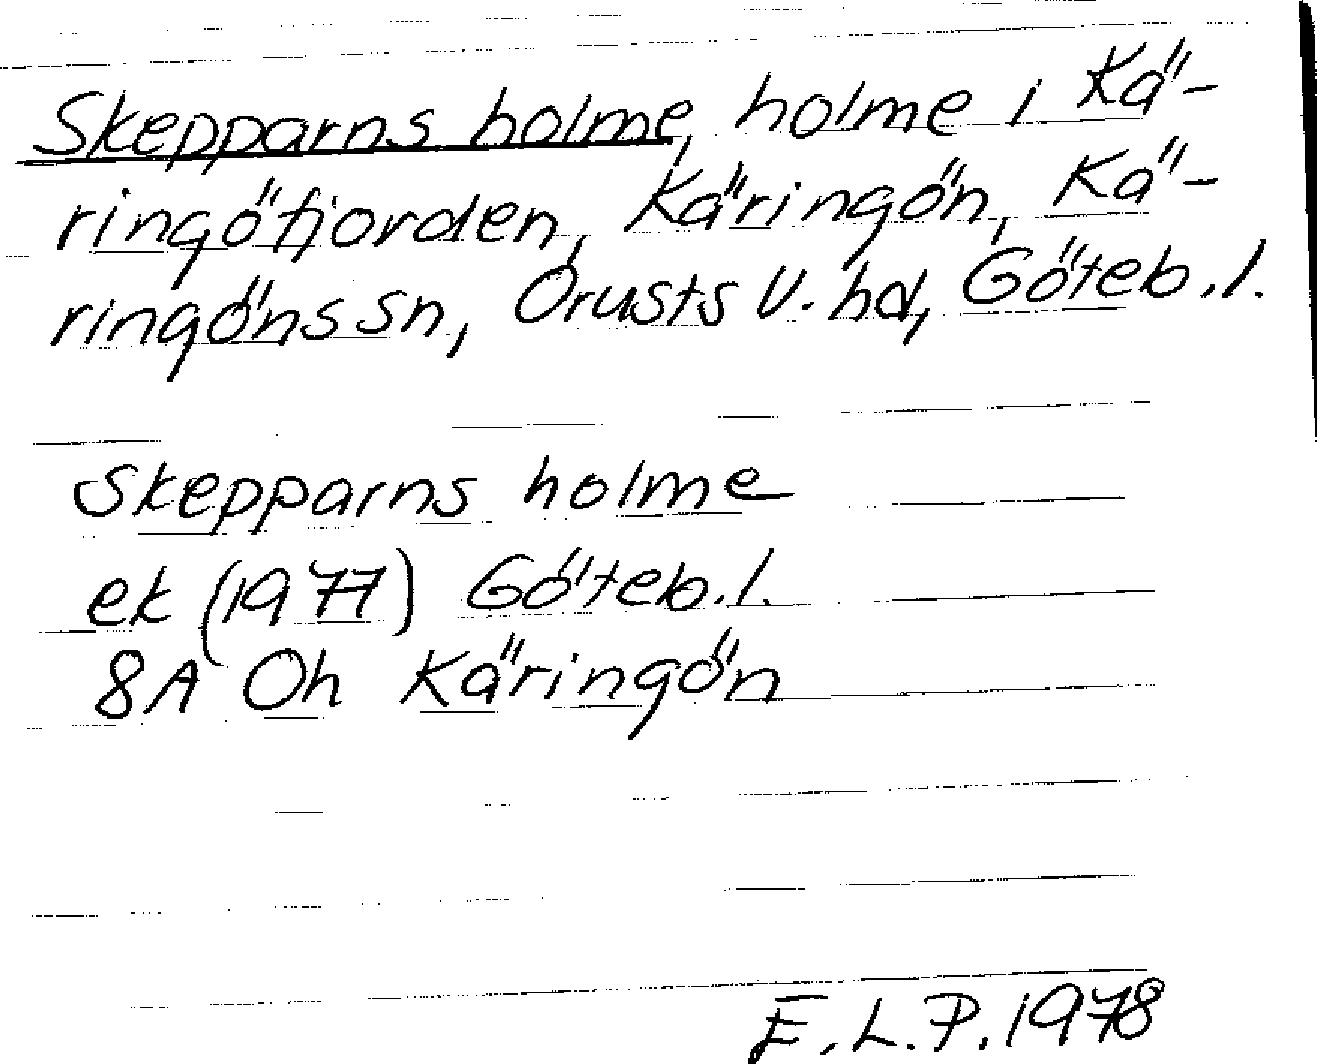 Skepparns holme, holme i Kä-
ringöfjorden, Käringön, Kä-
ringöns sn, Orusts V. hd, Göteb.l.
Skepparns holme
ek (1977) Göteb.l.
8A Oh Käringön
E.L.P. 1978